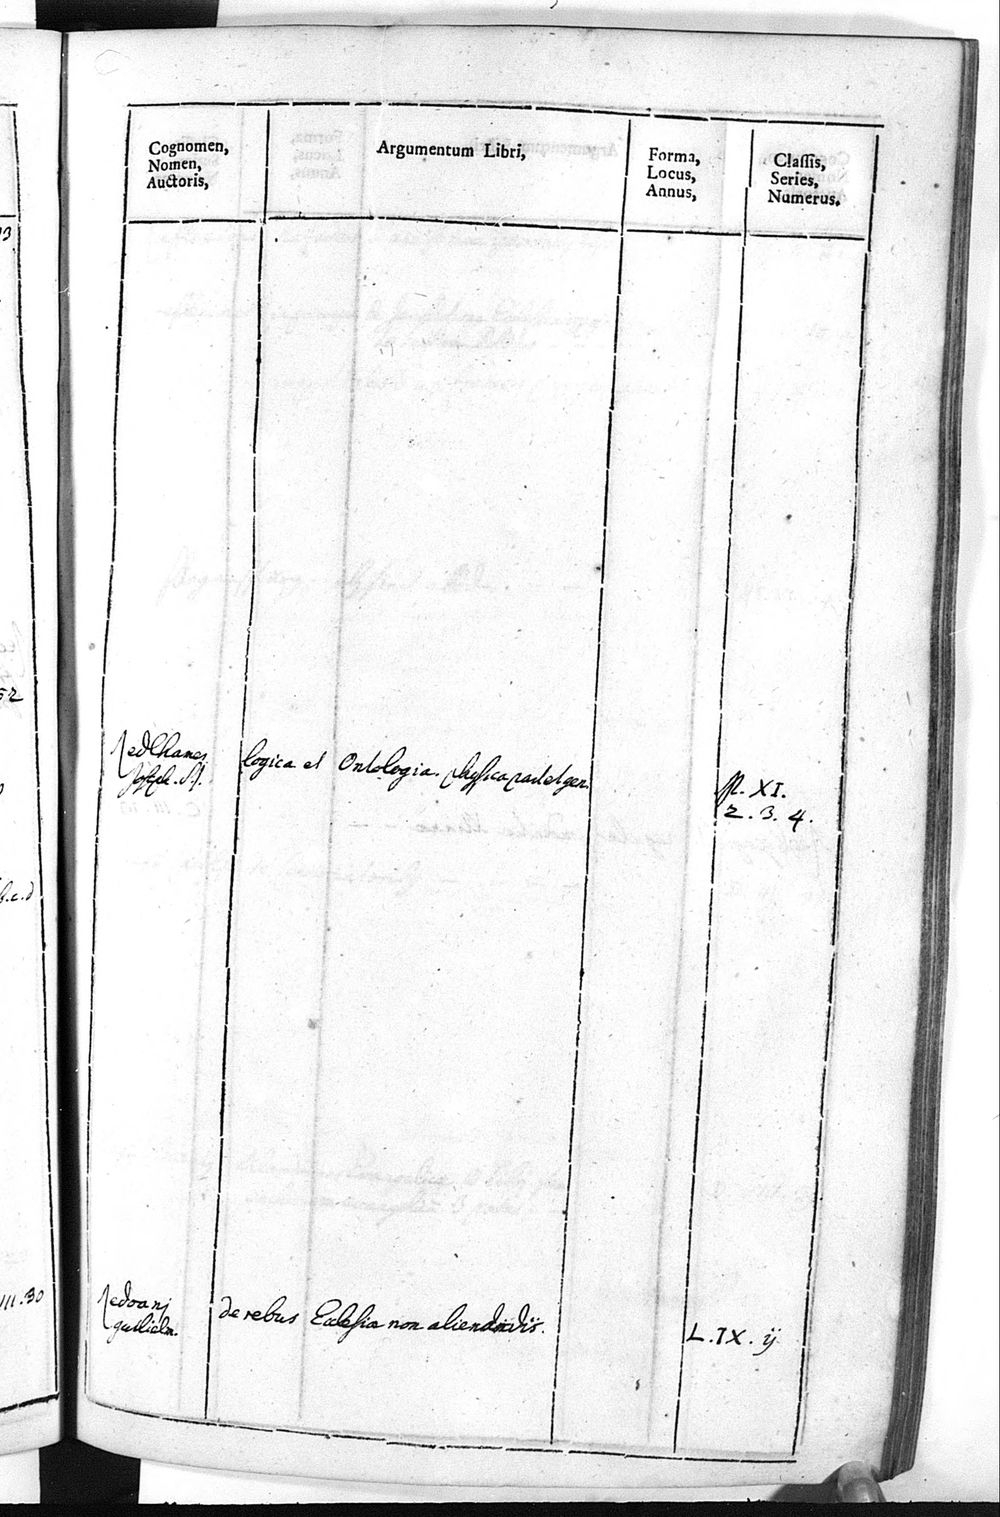 Cognomen,
Nomen,
Auctoris,
Argumentum Libri,
Forma,
Locus,
Annus,
Classis,
Series,
Numerus.
Redlhamer
Joseph. S.J.
logica et Ontologia. physica part et gen.
M. XI.
2. 3. 4.
Redoanj
guilielm.
de rebus Eclesiæ non aliendis.
L. IX. ij
52
b.c.d
III.30